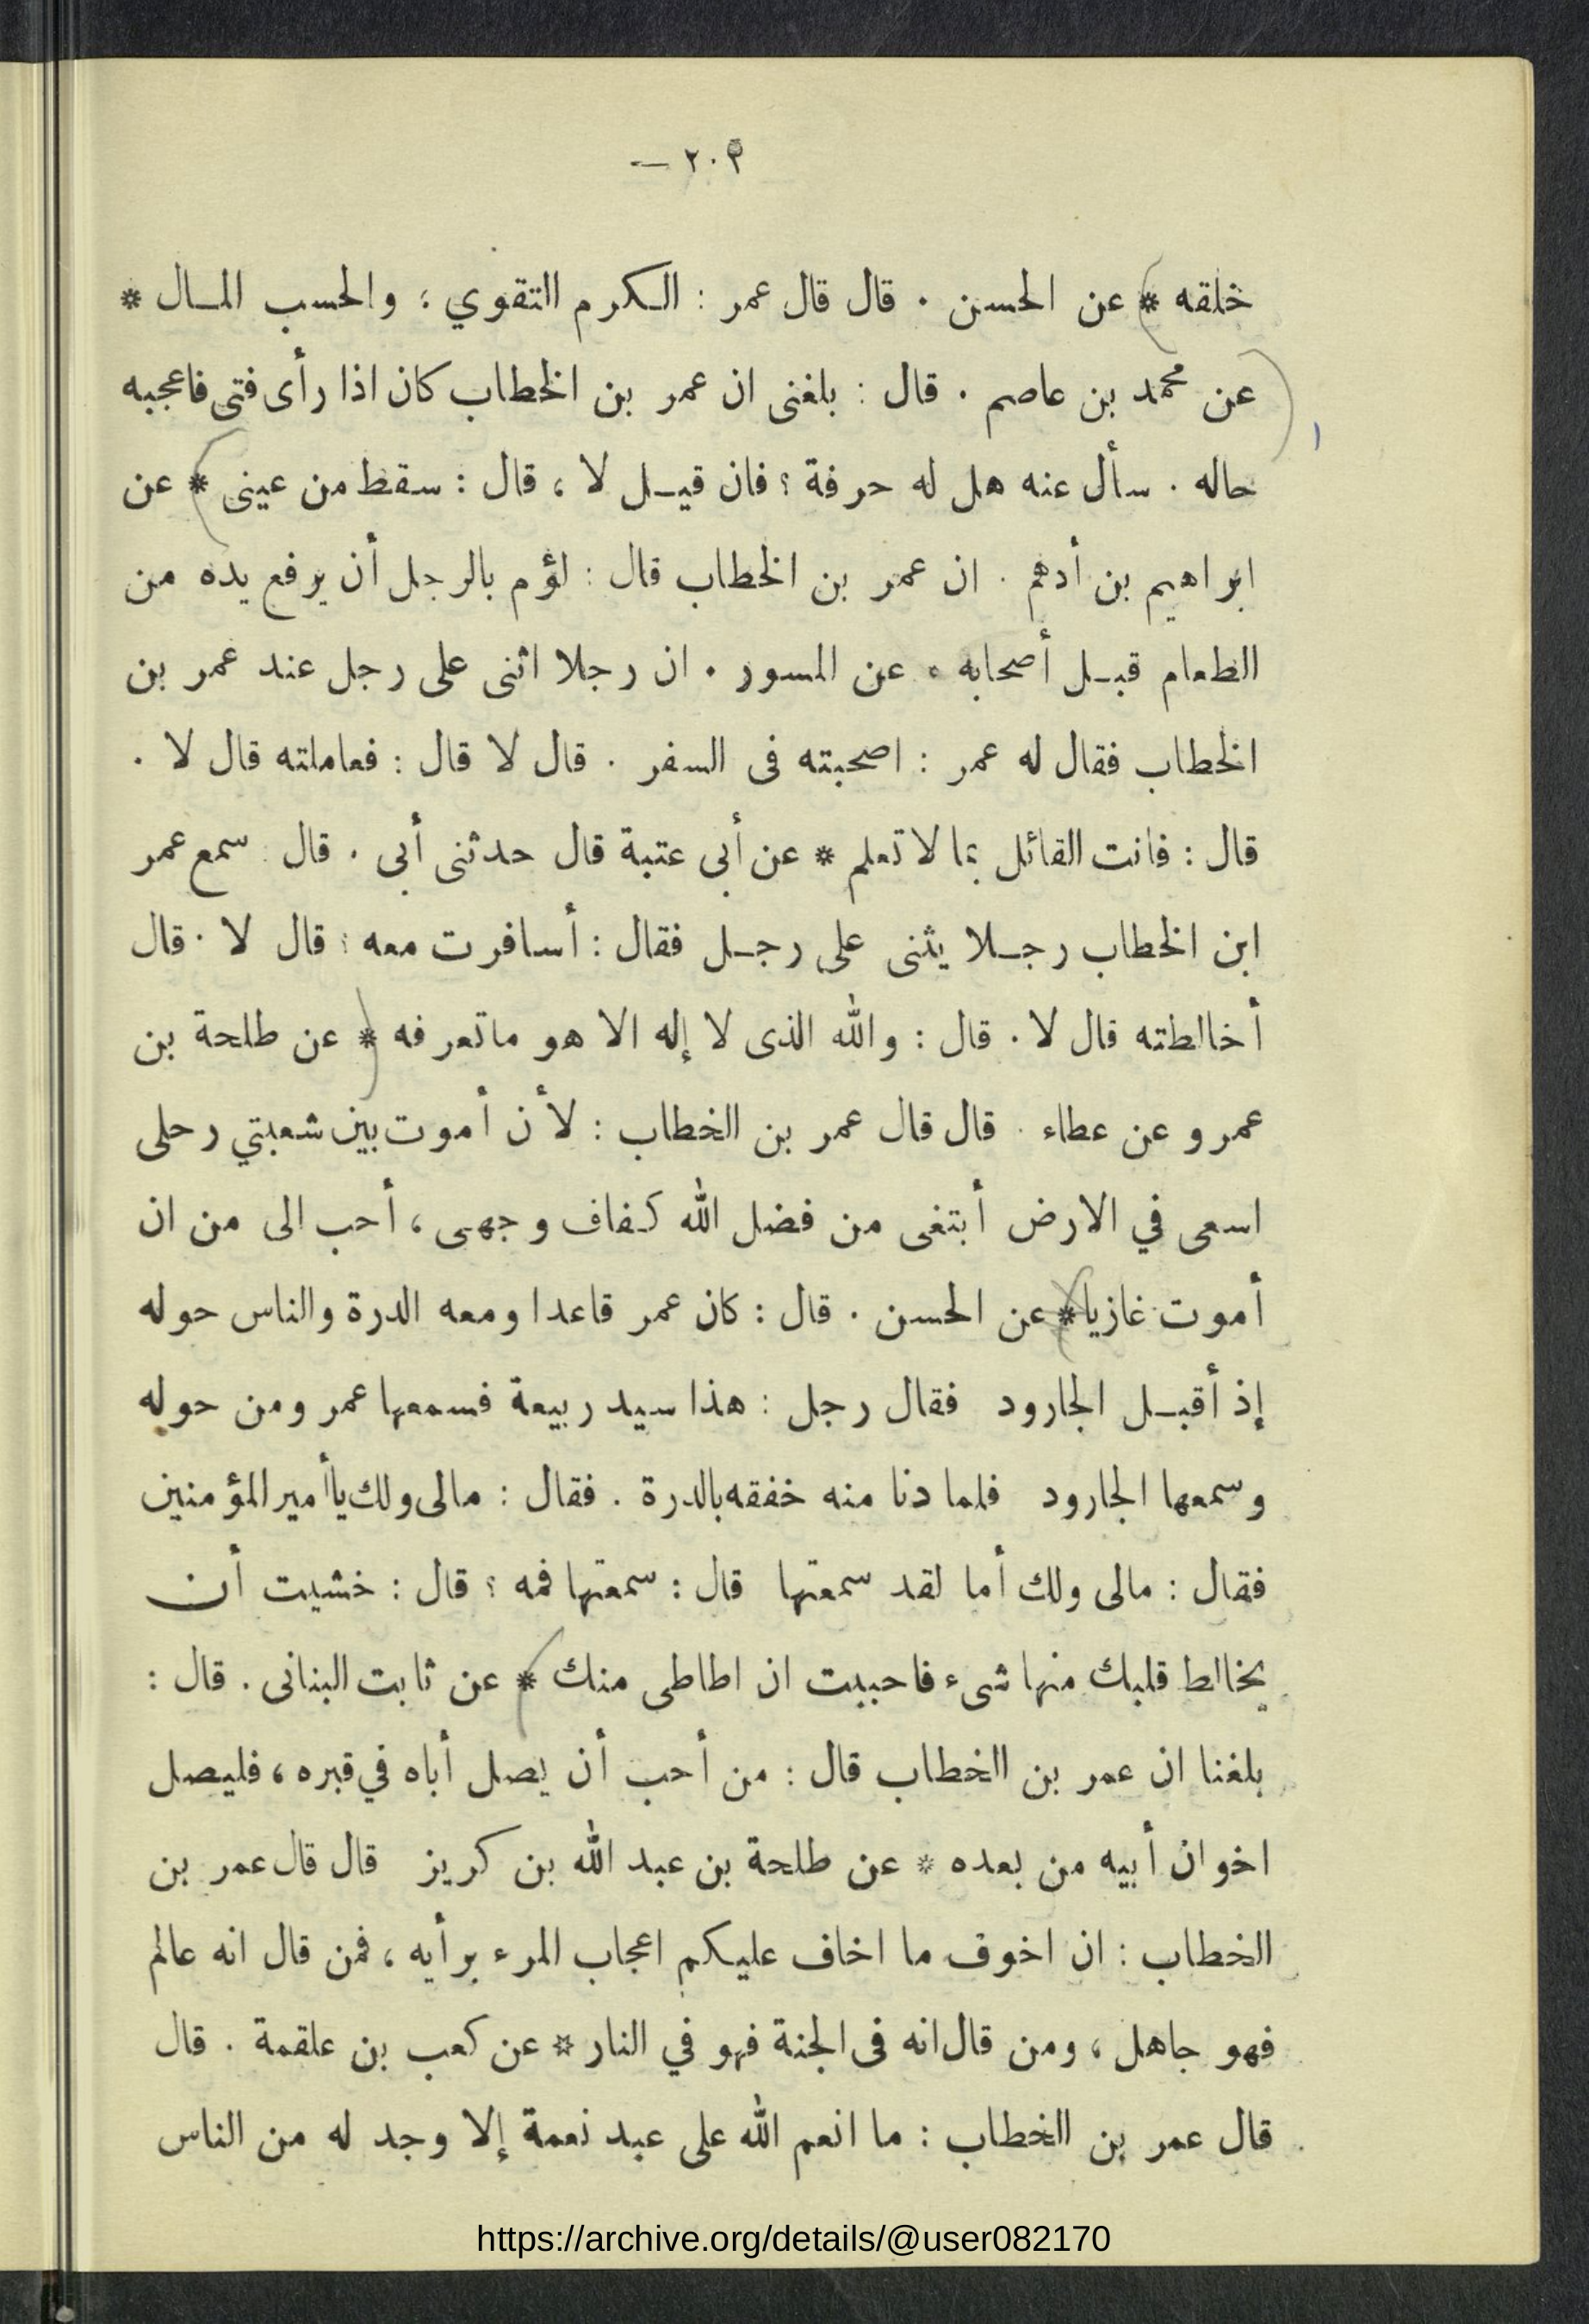 — ٢٠٣
خلقه * عن الحسن . قال قال عمر : الكرم التقوي ؛ والحسب المال *
عن محمد بن عاصم . قال : بلغنى ان عمر بن الخطاب كان اذا رأى فتى فاعجبه
حاله . سأل عنه هل له حرفة ؟ فان قيل لا ، قال : سقط من عينى * عن
ابراهيم بن أدهم . ان عمر بن الخطاب قال : لؤم بالرجل أن يرفع يده من
الطعام قبل أصحابه . عن المسور . ان رجلا اثنى على رجل عند عمر بن
الخطاب فقال له عمر : اصحبته فى السفر . قال لا قال : فعاملته قال لا .
قال : فانت القائل بما لا تعلم * عن أبى عتبة قال حدثنى أبى . قال : سمع عمر
ابن الخطاب رجلا يثنى على رجل فقال : أسافرت معه ؟ قال لا . قال
أخالطته قال لا . قال : والله الذى لا إله الا هو ماتعرفه * عن طلحة بن
عمرو عن عطاء . قال قال عمر بن الخطاب : لأن أموت بين شعبتي رحلى
اسعى في الارض أبتغى من فضل الله كفاف وجهى ، أحب الى من ان
أموت غازيا * عن الحسن . قال : كان عمر قاعدا ومعه الدرة والناس حوله
إذ أقبل الجارود فقال رجل : هذا سيد ربيعة فسمعها عمر ومن حوله
وسمعها الجارود فلما دنا منه خفقه بالدرة . فقال : مالى ولك يا أمير المؤمنين
فقال : مالى ولك أما لقد سمعتها قال : سمعتها فمه ؟ قال : خشيت أن
يخالط قلبك منها شىء فاحببت ان اطاطى منك * عن ثابت البنانى . قال :
بلغنا ان عمر بن الخطاب قال : من أحب أن يصل أباه في قبره ، فليصل
اخوان أبيه من بعده * عن طلحة بن عبد الله بن كريز قال قال عمر بن
الخطاب : ان اخوف ما اخاف عليكم اعجاب المرء برأيه ، فمن قال انه عالم
فهو جاهل ، ومن قال انه فى الجنة فهو في النار * عن كعب بن علقمة . قال
قال عمر بن الخطاب : ما انعم الله على عبد نعمة إلا وجد له من الناس
https://archive.org/details/@user082170